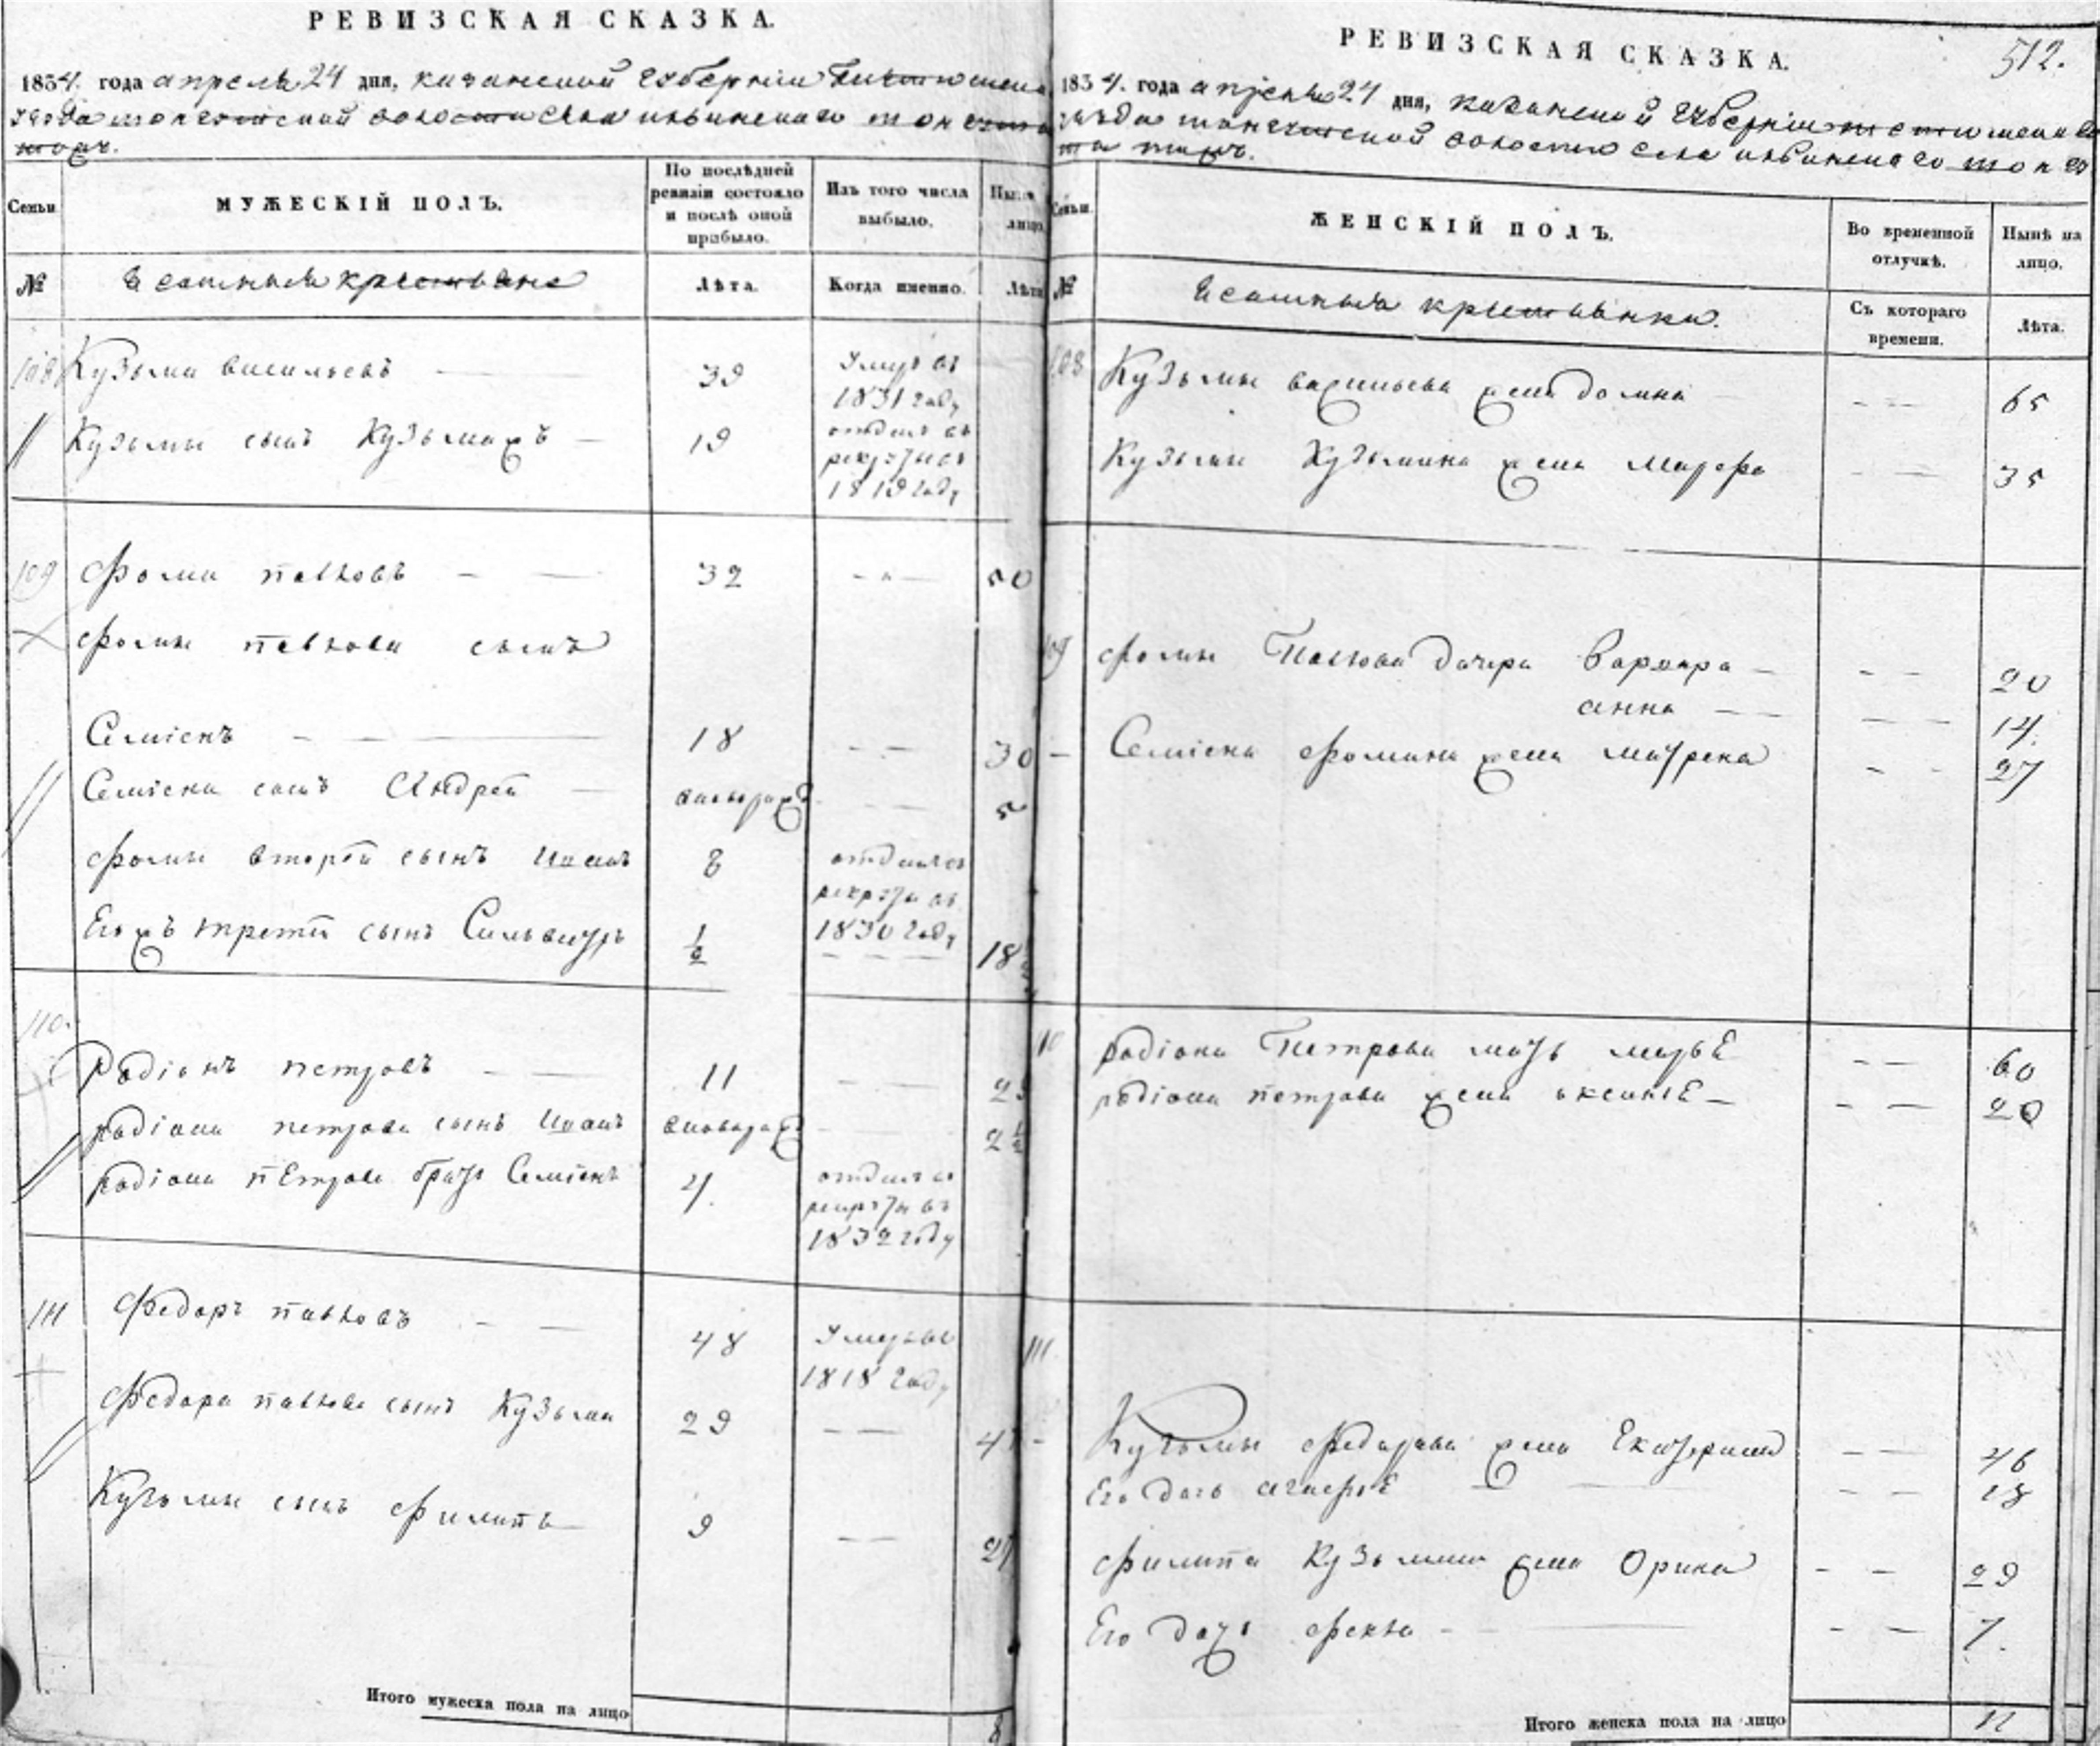 РЕВИЗСКАЯ СКАЗКА.
1834. года апреля 24 дня, казанской губернии
волости села
МУЖЕСКІЙ ПОЛЪ.
Семьи
По послѣдней ревизіи состояло и послѣ оной прибыло.
Изъ того числа выбыло.
Нынѣ на лицо.
№
Ясашныя крестьяне
Лѣта.
Когда именно.
Лѣта
108 Кузьма васильевъ 39 Умръ въ 1831 году
Кузьмы сынъ Кузьма 19 отданъ въ рекруты въ 1819 году
109 фома павловъ 32 50
фомы павлова сынъ
Семіонъ 18 30
Семіона сынъ Андрей 5
фомы второй сынъ Иванъ 8 отданъ въ рекруты въ 1830 году
Его третій сынъ 1/2 18
110. Родіонъ петровъ 11
родіона петрова сынъ Иванъ
родіона петрова братъ Семіонъ 4. отданъ въ рекруты въ 1832 году
111 Федоръ павловъ 48 Умръ въ 1818 году
федора павлова сынъ Кузьма 29
Кузьмы сынъ филипъ 9 27
Итого мужеска пола на лицо 8
512.
РЕВИЗСКАЯ СКАЗКА.
1834. года апреля 24 дня, казанской губернии
волости села
Семьи
ЖЕНСКІЙ ПОЛЪ.
Во временной отлучкѣ.
Нынѣ на лицо.
№
Ясашныя крестьянки.
Съ котораго времени.
Лѣта.
108 Кузьмы васильева жена домна 65
Кузьмы Кузьмина жена марфа 35
109 фомы Павлова дочери Варвара 20
анна 14.
Семіона фомина жена матрена 27
110 родіона Петрова мать марья 60
родіона петрова жена аксинья
111. Кузьмы федорова жена Екатерина 46
Его дочь 18
филипа Кузьмина жена Орина 29
Его дочь фекла 7.
Итого женска пола на лицо 11